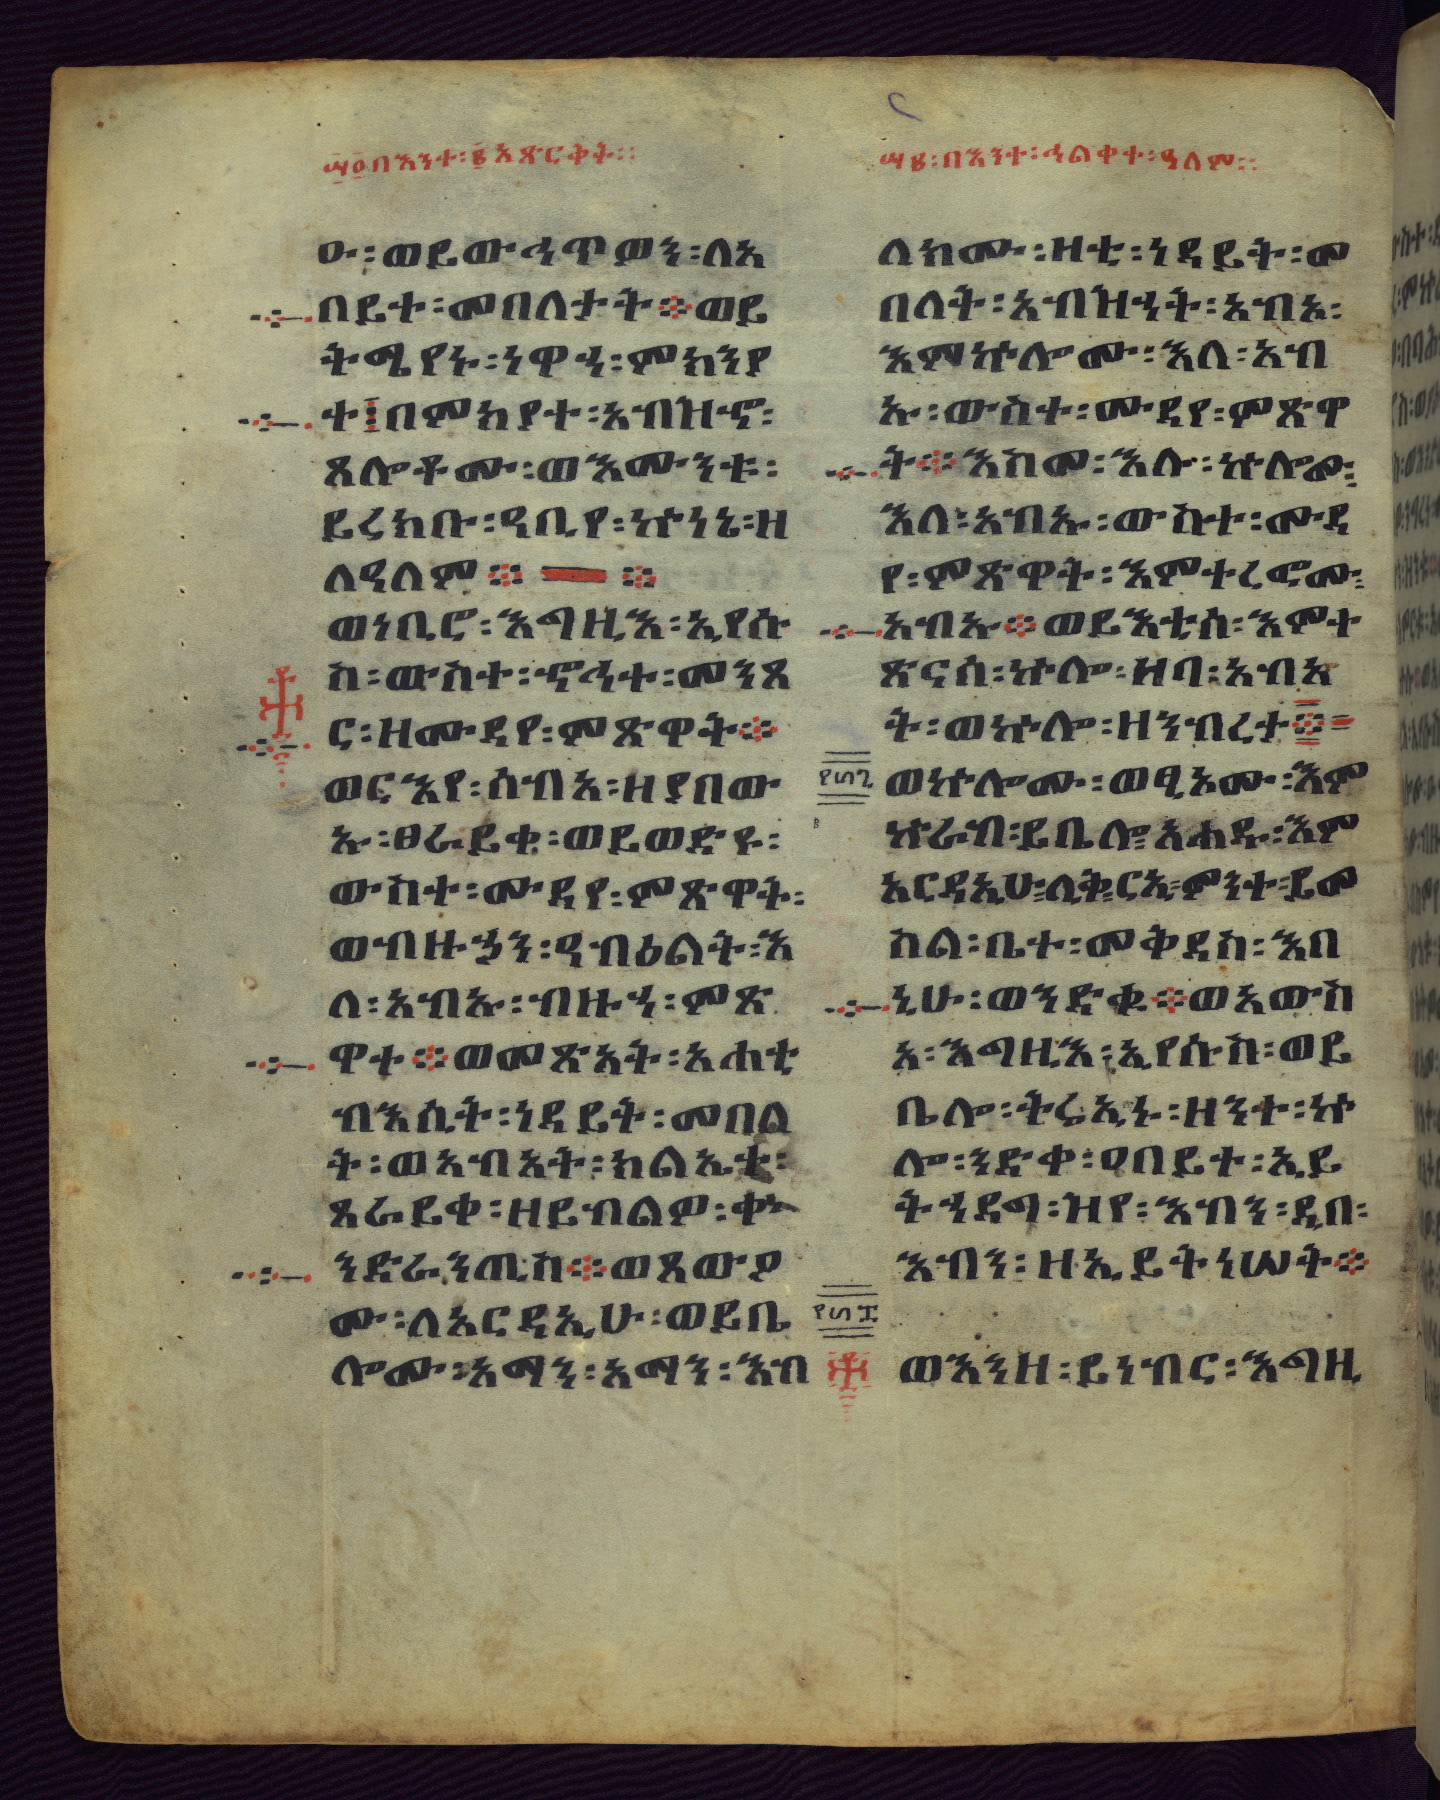 ፵፩በእንተ፡፪አጽርቅት።
ዑ፡ወይውኅጥዎን፡ለአ
በይተ፡መበለታት፨ወይ
ትሜየኑ፡ነዋኃ፡ምክንያ
ተ፤በምክያተ፡አብዝኆ፡
ጸሎቶሙ፡ወእሙንቱ፡
ይረክቡ፡ዳቢየ፡ኵነኔ፡ዘ
ለዓለም፨ ፨
ወነቢሮ፡እግዚእ፡ኢየሱ
ስ፡ውስተ፡ኆኅተ፡መንጸ
ር፡ዘሙዳየ፡ምጽዋት፨
ወርእየ፡ሰብአ፡ዘያበው
ኡ፡ፀራይቀ፡ወይወድዩ፡
ውስተ፡ሙዳየ፡ምጽዋት፡
ወብዙኃን፡ዓብዕልት፡እ
ለ፡አብኡ፡ብዙኃ፡ምጽ
ዋተ፨ወመጽአት፡አሐቲ
ብእሲት፡ነዳይት፡መበል
ት፡ወአብአት፡ክልኤቲ፡
ጸራይቀ፡ዘይብልዎ፡
ንድራንጤስ፨ወጸውዖ
ሙ፡ለአርዳኢሁ፡ወይቤ
ሎሙ፡አማን፡አማን፡እብ
፵፪፡በእንተ፡ኅልቀተ፡ዓለም።
ለክሙ፡ዛቲ፡ነዳይት፡መ
በለት፡አብዝኃት፡አብአ፡
እምኵሎሙ፡እለ፡አብ
ኡ፡ውስተ፡ሙዳየ፡ምጽዋ
ት፨እስመ፡እሉ፡ኵሎሙ፡
እለ፡አብኡ፡ውስተ፡ሙዳ
የ፡ምጽዋት፡እምተረፎሙ፡
አብኡ፨ወይእቲሰ፡እምተ
ጽናሰ፡ኵሎ፡ዘባ፡አብአ
ት፡ወኵሎ፡ዘንብረታ፨
ወኵሎሙ፡ወፂኦሙ፡እም
ኵራብ፡ይቤሎ፡አሐዱ፡እም
አርዳኢሁ፡ሊቅ፡ርኢ፡ምንተ፡ይመ
ስል፡ቤተ፡መቅደስ፡እበ
ኒሁ፡ወንድቁ፨ወአውሥ
አ፡እግዚእ፡ኢየሱስ፡ወይ
ቤሎ፡ትሬኢኑ፡ዘንተ፡ኵ
ሎ፡ንድቀ፡ዐበይተ፡ኢይ
ትኃደግ፡ዝየ፡እብን፡ዲበ፡
እብን፡ዘኢይትነሠት፨
ወእንዘ፡ይነብር፡እግዚ